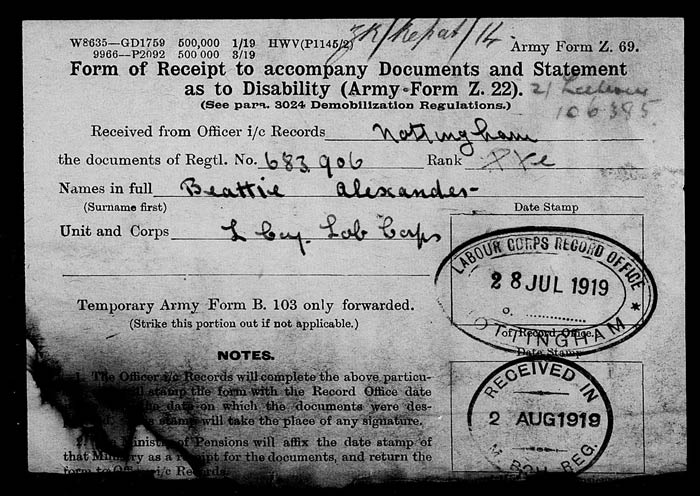 W8635—GD1759 500,000 1/19 HWV(P1145/2)
9966—P2092 500000 3/19
ZK/Repat/14
Army Form Z. 69.
Form of Receipt to accompany Documents and Statement
as to Disability (Army Form Z. 22).
(See para. 3024 Demobilization Regulations.)
21
106385
Received from Officer i/c Records Nottingham
the documents of Regtl. No. 683906 Rank Pte
Names in full Beattie Alexander
(Surname first)
Date Stamp
Unit and Corps L Coy. Lab Corps
LABOUR CORPS RECORD OFFICE
28 JUL 1919
NOTTINGHAM
of Record Office.
Temporary Army Form B. 103 only forwarded.
(Strike this portion out if not applicable.)
Date Stamp
RECEIVED IN
2 AUG 1919
REG.
NOTES.
1. The Officer i/c Records will complete the above particu-
stamp the form with the Record Office date
the date on which the documents were des-
stamp will take the place of any signature.
2. Ministry of Pensions will affix the date stamp of
that Ministry as a receipt for the documents, and return the
form to Officer i/c Records.